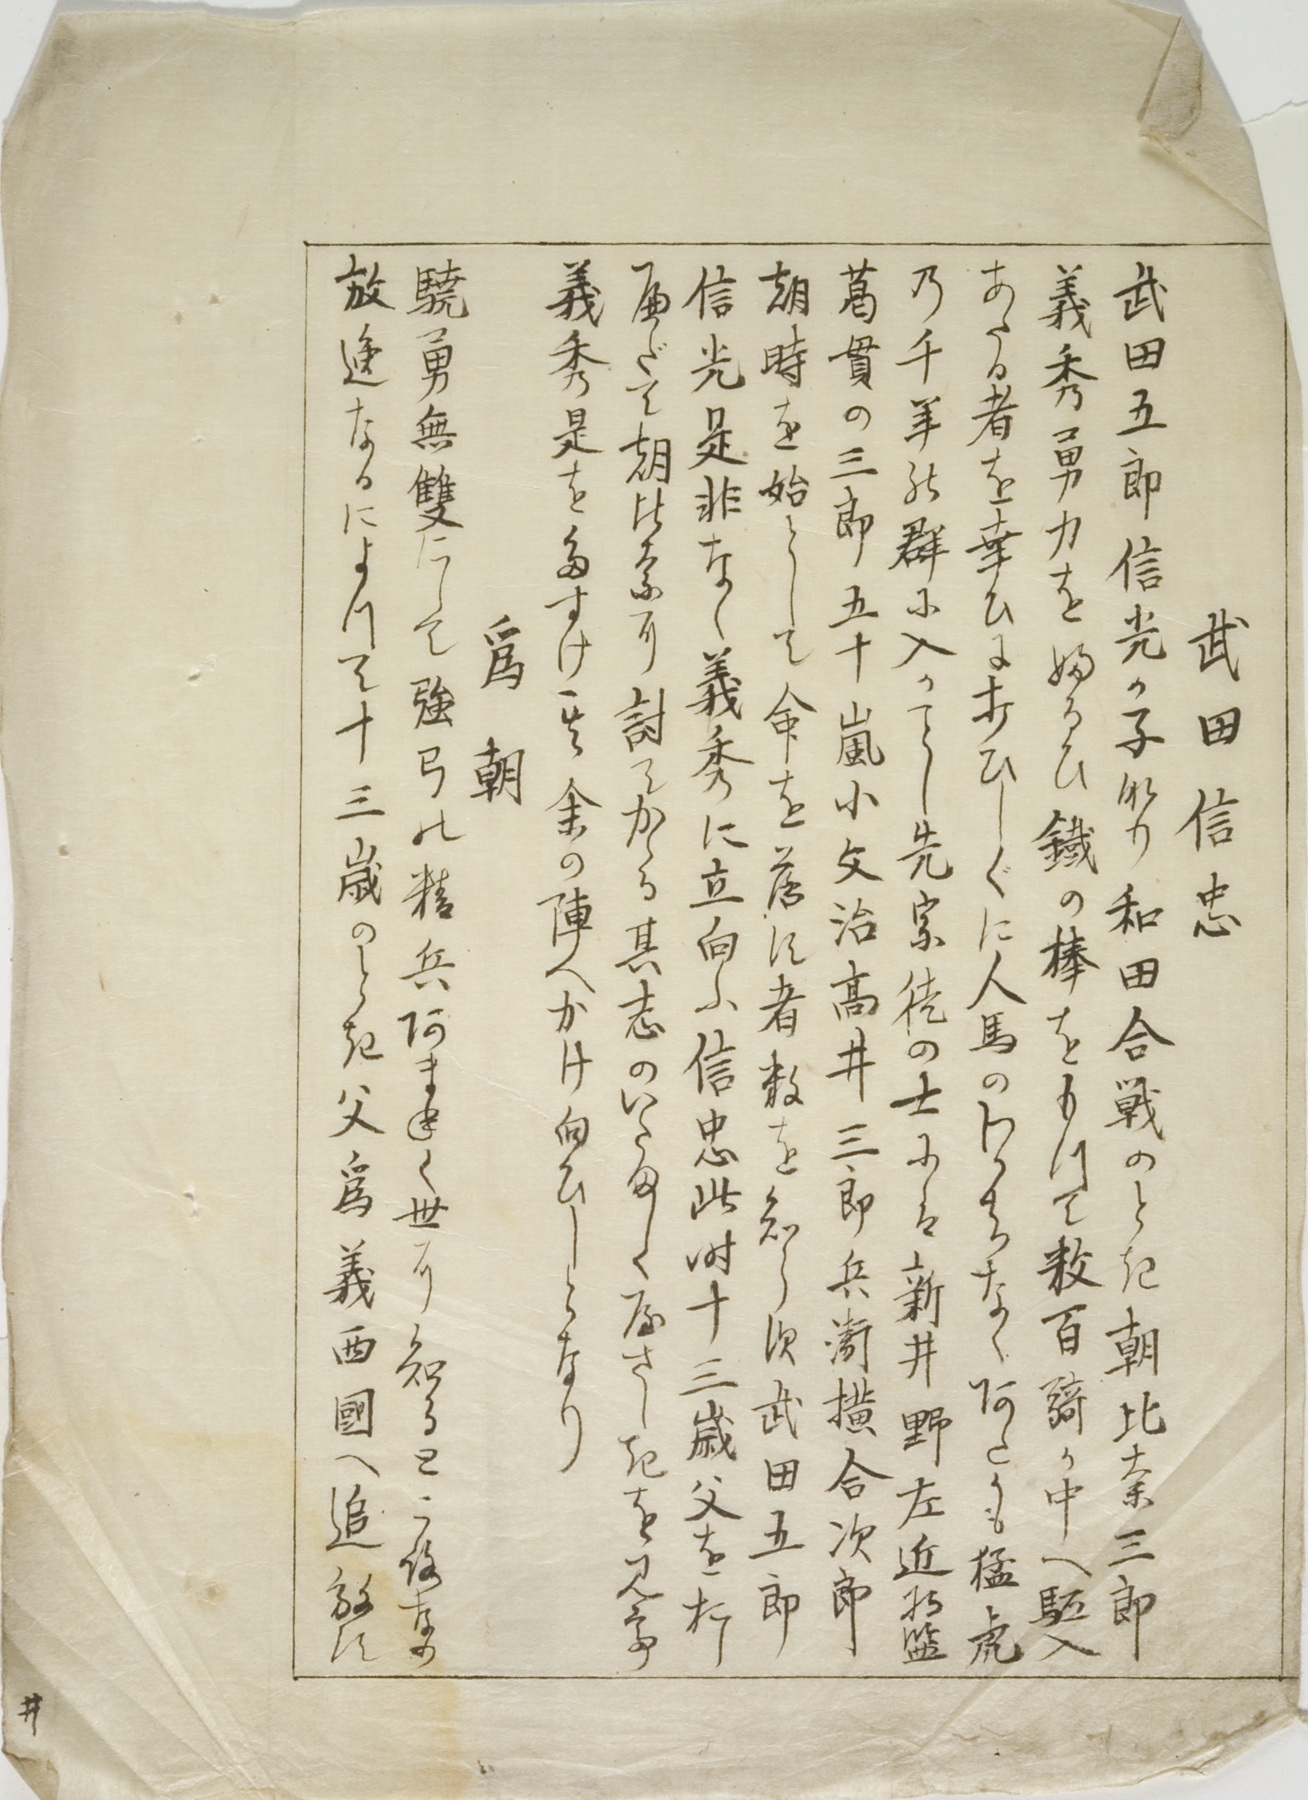 武田信忠
武田五郎信光か子なり和田合戦のとき朝比奈三郎
義秀勇力を婦るひ鐵の棒をもつて数百騎か中へ駈入
あたる者を幸ひに打ひしぐに人馬のわかちなく阿たかも猛虎
乃千羊の群に入かことし先宗徒の士には新井野左近将監
葛貫の三郎五十嵐小文治高井三郎兵衛横合次郎
朝時を始として命を落す者数を知らす武田五郎
信光是非なく義秀に立向ふ信忠此時十三歳父を
へだて朝比奈に討てかゝる其志のいたましくやさしきを見て
義秀是をたすけ其余の陣へかけ向ひしとなり
爲朝
驍勇無雙にして強弓の精兵阿まねく世に知る
放逸なるによつて十三歳のとき父爲義西國へ追放す
井